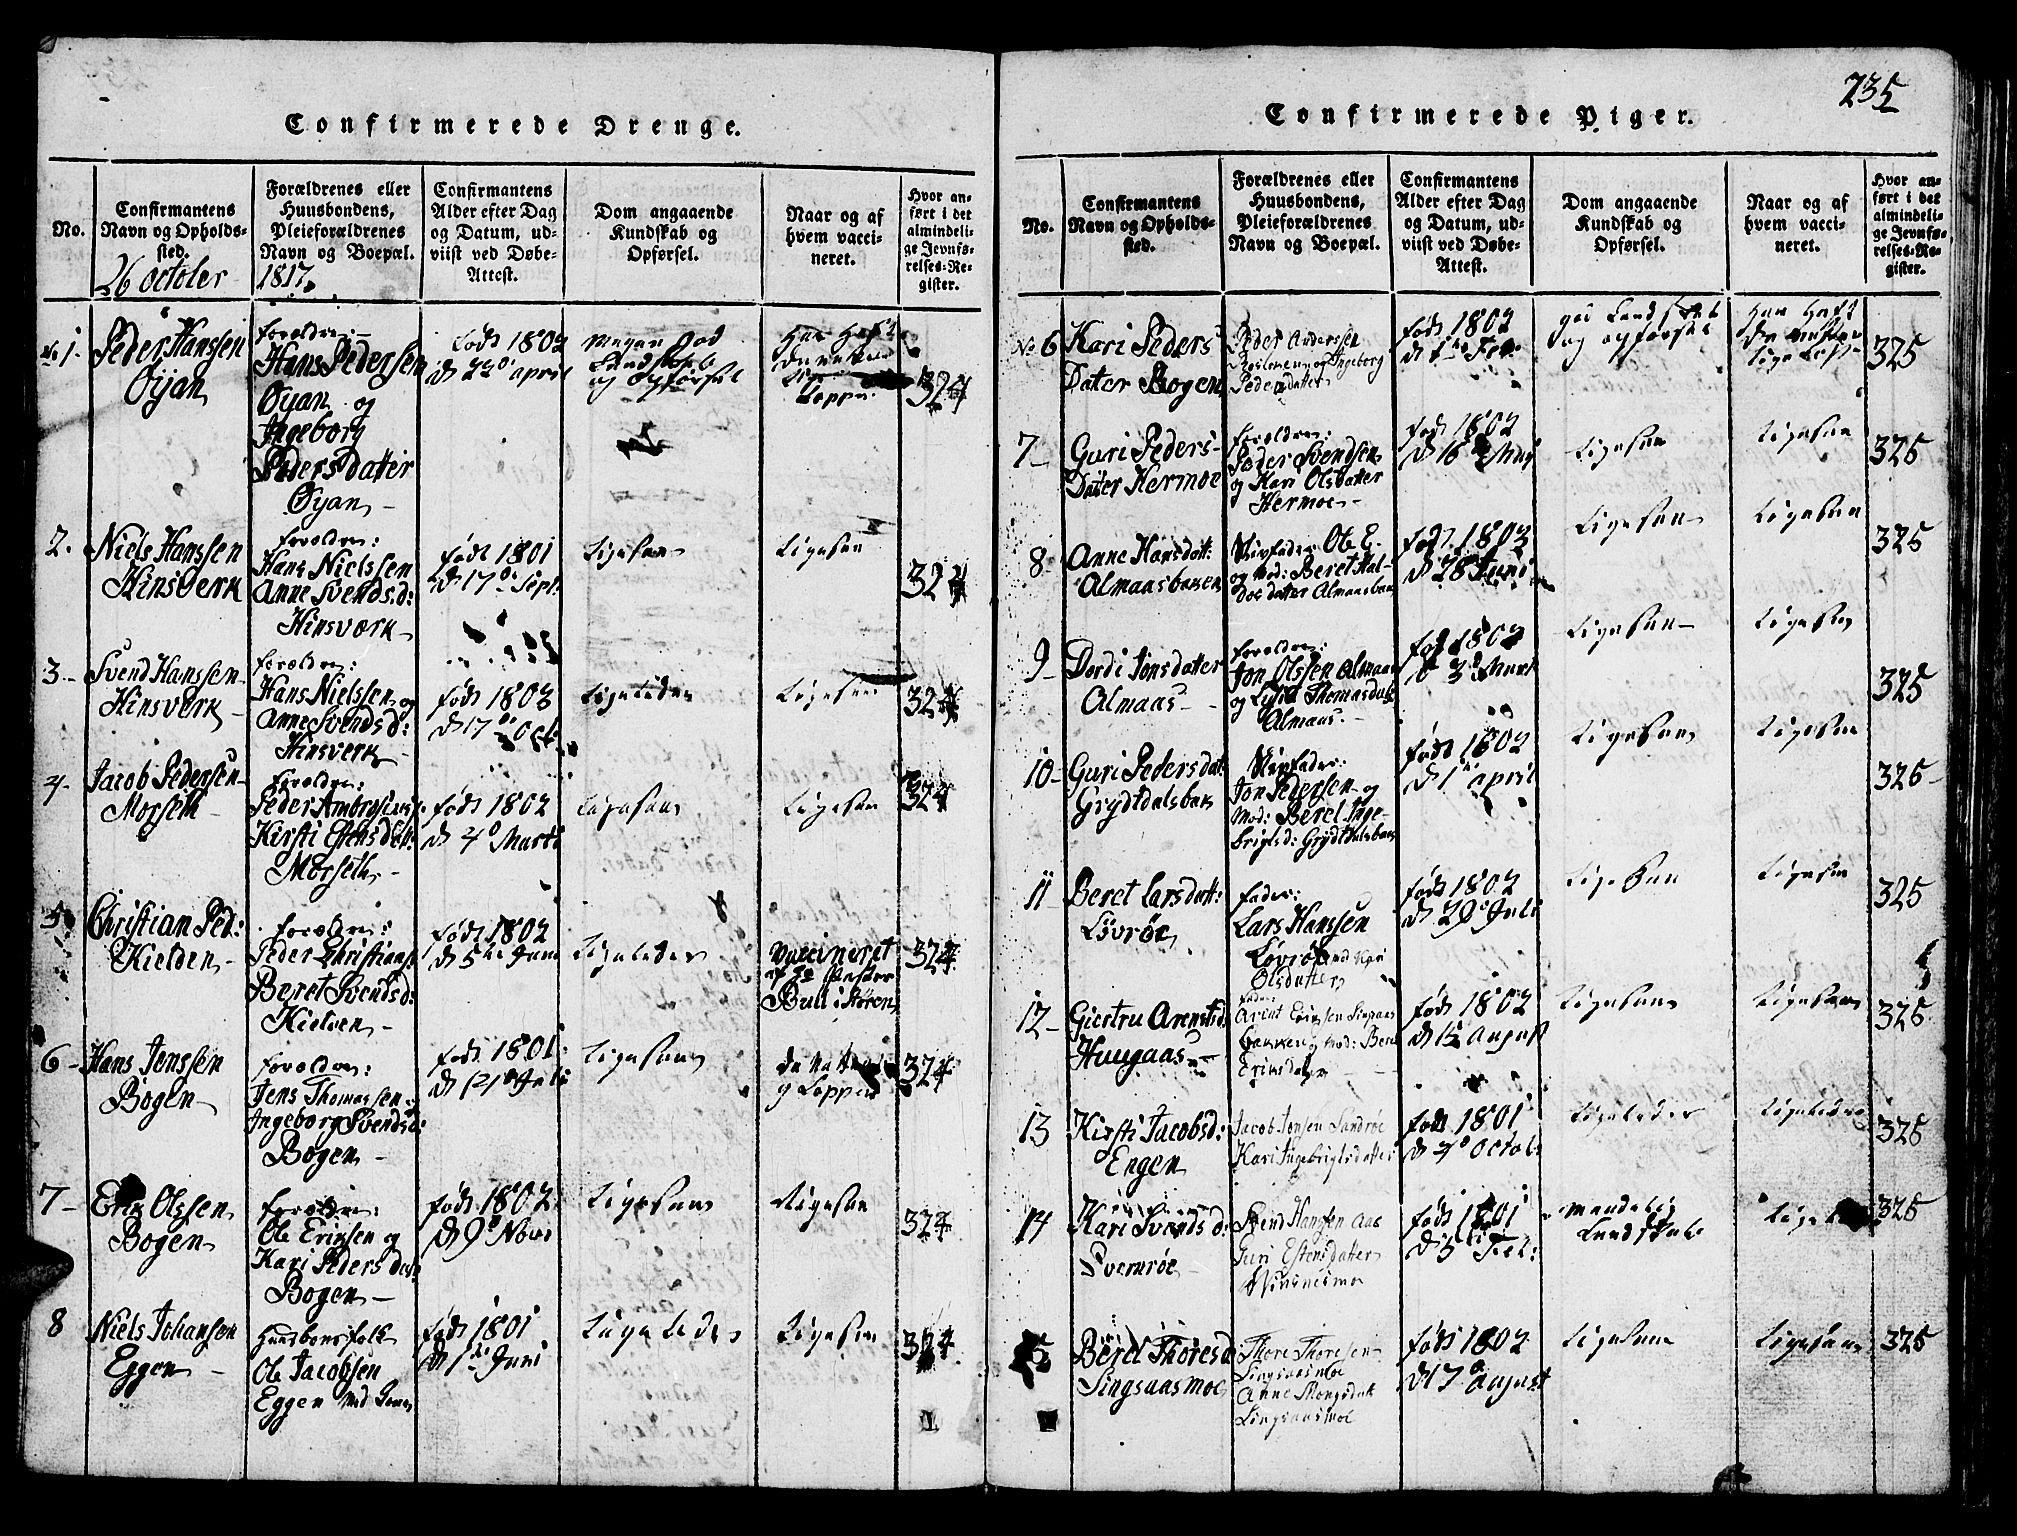 235
Confirmerede Drenge.
No.
Confirmantens
Navn og Opholds-
sted.
Forældrenes eller
Huusbondens,
Pleieforældrenes
Navn og Boepæl.
Confirmantens
Alder efter Dag
og Datum, ud-
viist ved Døbe-
Attest.
Dom angaaende
Kundskab og
Opførsel.
Naar og af
hvem vacci-
neret.
Hvor an-
ført i det
almindeli-
ge Jevnfø-
relses-Re-
gister.
26 October 1817.
1.
Peder Hanssen
Öyan
forældre:
Hans Pedersen
Öyan og
Ingeborg
Pedersdatter
Öyan
født 1802
d 22 april
megen god
Kundskab
og opførsel
har haft
Kopper
324
2.
Niels Hanssen
Hinsverk
forældre:
Hans Nielssen
Anne Svends.d:
Hinsværk
født 1801
d 17 Sept:
Ligesaa
Ligesaa
324
3.
Svend Hanssen
Hinsverk
forældre:
Hans Nielssen og
Anne Svends d:
Hinsverk
født 1803
d 17 Oct
Ligeledes
Ligesaa
324
4.
Jacob Pedersen
Morseth
forældre:
Peder
Kirsti Estensdat:
Morseth
født 1802
d 4 Marti
Ligesaa
Ligesaa
324
5
Christian Ped:
Kielden
forældre:
Peder Christians:
Beret Svends d:
Kielden
født 1802
d 5 Juni
Ligeledes
Vaccineret
af
Bull i Støren
324
6
Hans Jenssen
Bogen
forældre:
Jens Thomassen
Ingeborg Svends d:
Bogen
født 1801
d 21 Juli
Ligesaa
Kopper
324
7
Erik Olssen
Bogen
forældre:
Ole Ericsen og
Kari Peders dat
Bogen
født 1802
d 9 Nov
Ligesaa
Ligesaa
324
8
Niels Johansen
Eggen
Huusbonsfolk
Ole Jacobsen
Eggen med Kone
født 1801
d 1 Juni
Ligeledes
Ligesaa
324
Confirmerede Piger.
No.
Confirmantens
Navn og Opholds-
sted.
Forældrenes eller
Huusbondens,
Pleieforældrenes
Navn og Boepæl.
Confirmantens
Alder efter Dag
og Datum, ud-
viist ved Døbe-
Attest.
Dom angaaende
Kundskab og
Opførsel.
Naar og af
hvem vacci-
neret.
Hvor an-
ført i det
almindeli-
ge Jevnfø-
relses-Re-
gister.
No 6
Kari Peders
Dater Bogen
Peder Anderssen
og Ingeborg
Pedersdatter
født 1802
d 1 Feb.
god Kundskab
og opførsel
har haft
325
7
Guri Peders-
Dater Hermoe
forældre:
Peder Svendsen
og Kari Olsdatter
Hermoe
født 1802
d 16 Maj
Ligesaa
Ligesaa
325
8
Anne Hansdatt:
Almaasbaken
Stivfader Ole E.
og mod: Beret Hal-
dos datter Almaasbak
født 1803
d 28 Juni
Ligesaa
Ligesaa
325
9
Dordi Jonsdatter
Almaas
forældre:
Jon Olssen Almaas
og Thomasdat
Almaas
født 1803
d 3 Mart
Ligesaa
Ligesaa
325
10
Guri Pedersdat:
Grydtdalsbak
Stivfader:
Jon Pedersen og
Mod: Beret Inge-
brigtsd: Grydtdalsbak
født 1802
d 1 april
Ligesaa
Ligesaa
325
11
Beret Larsdatt:
Lövröe
Fader:
Lars Hansen
Lövröe
Olsdatter
født 1802
d 29 Juli
Ligesaa
Ligesaa
325
12
Giertru Arentsd:
Haugaas
Fader:
Arent Ericsen Singsaas
bakken og mod: Beret
Ericsdater
født 1802
d August
Ligesaa
Ligesaa
325
13
Kirsti Jacobsd:
Engen
Jacob Jonsen Sandröe
Kari Ingebrigtsdatter
født 1801
d 4 Octob
Ligeledes
Ligeledes
325
14
Kari Svends d:
Sverröe
Svend Hansen Aas
Guri Estensdatter
Winsnesmoe
født 1801
d 5 Feb:
maadelig
Kundskab
325
15
Beret Thoresd
Singsaasmoe
Thore Thoresen
Singsaasmoe
Anne Mongsdat
Singsaasmoe
født 1802
d 17 august
Ligesaa
Ligesaa
325